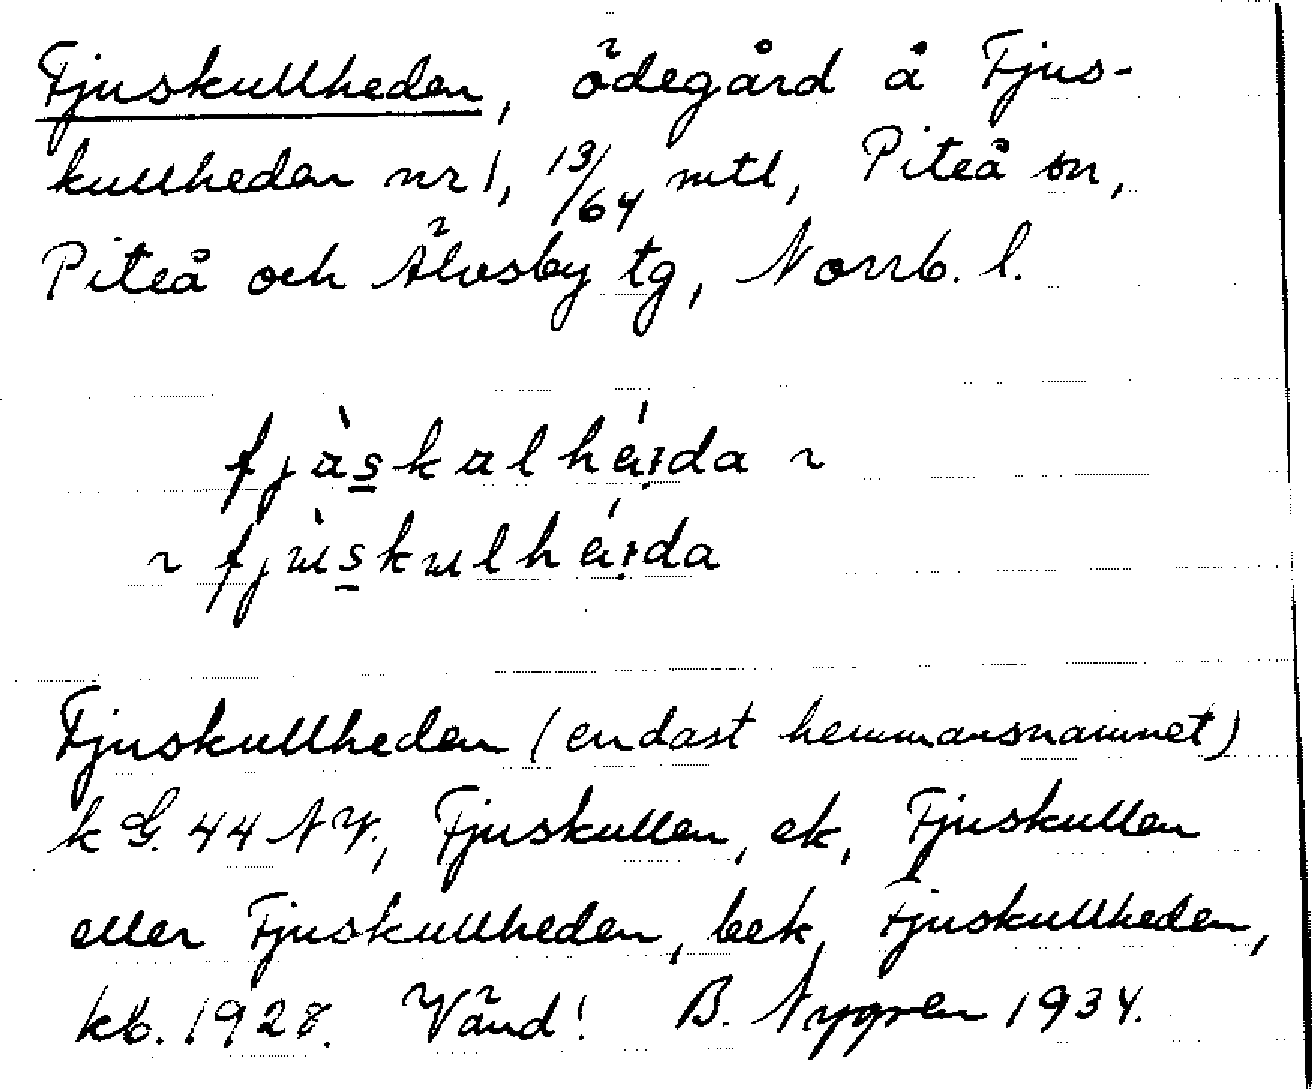 Fjuskullheden, ödegård å Fjus-
kullheden nr 1, 13/64 mtl, Piteå sn,
Piteå och Älvsby tg, Norrb. l.
fjùskulhéida ~
~ fjùskulhéida
Fjuskullheden (endast hemmansnamnet)
k G. 44 NV., Fjuskullen, ek, Fjuskullen
eller Fjuskullheden, bek, Fjuskullheden,
kb. 1928. Vänd! B. Nygren 1934.